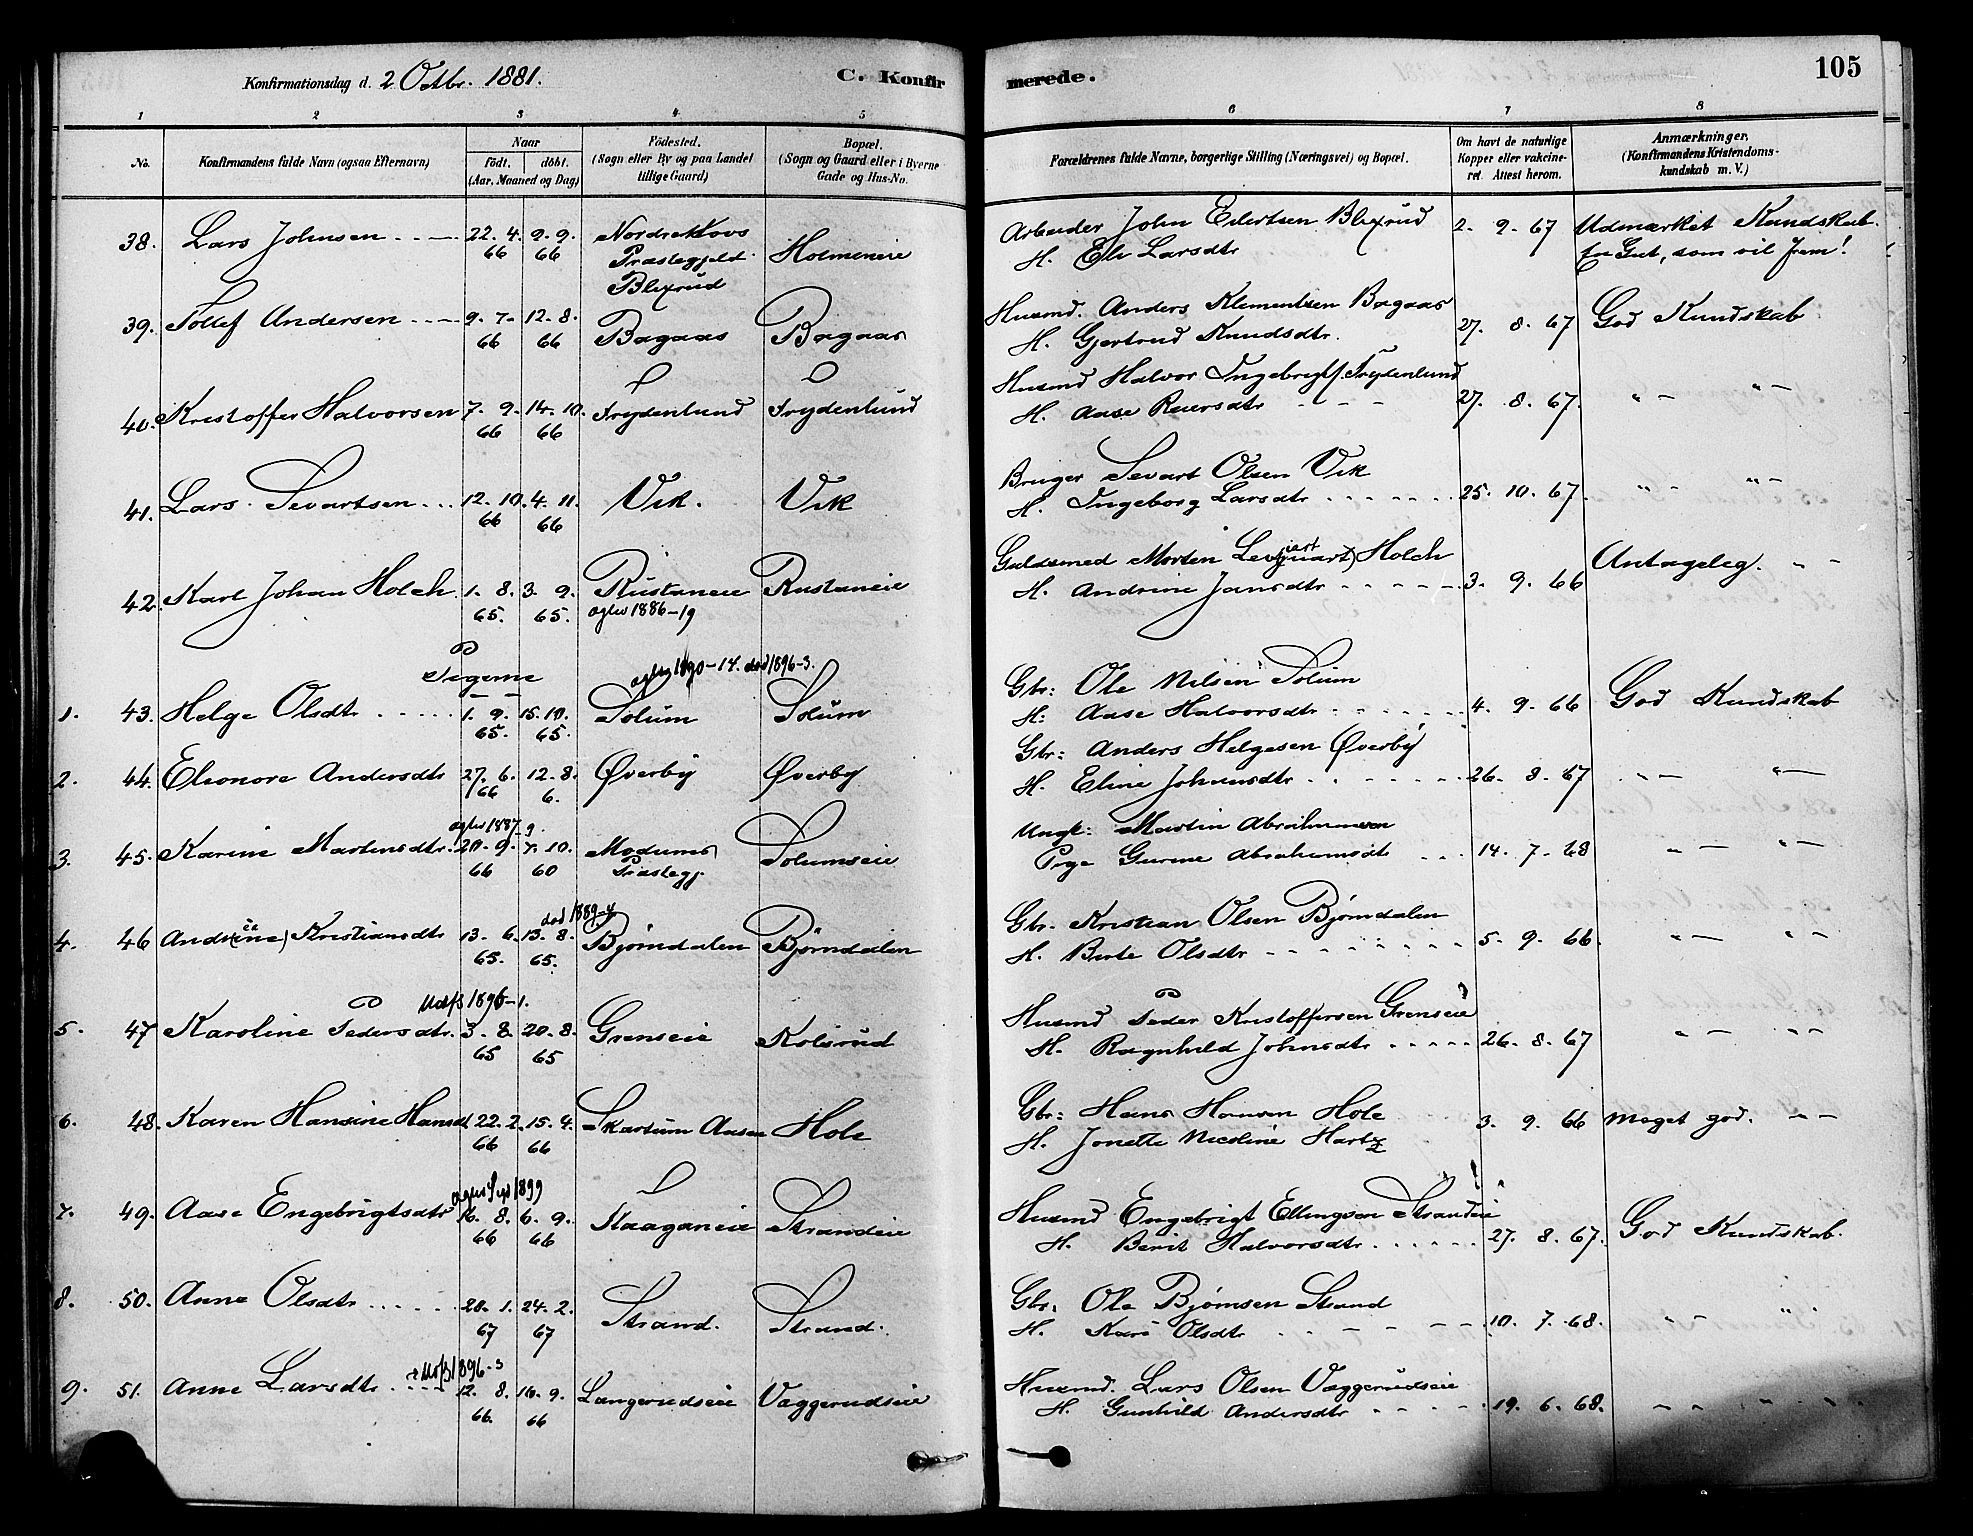 Konfirmationsdag d. 2 Octbr. 1881.
C. Konfirmerede.
105
1 2 3 4 5 6 7 8
No.
Konfirmandens fulde Navn (ogsaa Efternavn)
Naar
födt. döbt.
(Aar, Maaned og Dag)
Födested.
(Sogn eller By og paa Landet
tillige Gaard)
Bopæl.
(Sogn og Gaard eller i Byerne
Gade og Hus-No.
Forældrenes fulde Navne, borgerlige Stilling (Næringsvei) og Bopæl.
Om havt de naturlige
Kopper eller vakcine-
ret. Attest herom.
Anmærkninger.
(Konfirmandens Kristendoms-
kundskab m. V.)
38. Lars Johnsen 22. 4. 66 9. 9. 66 Nordrehovs Præstegjeld Blexrud Holmeneie
Arbeider John Eilertsen Blexrud
H. Eli Larsdtr
2. 9. 67 Udmærket Kundskab.
En Gut, som vil frem!
39. Tollef Andersen 9. 7. 66 12. 8. 66 Bagaas Bagaas
Husmd. Anders Klementsen Bagaas
H. Gjertrud Knudsdtr.
27. 8. 67 God Kundskab
40. Kristoffer Halvorsen 7. 9. 66 14. 10. 66 Frydenlund Frydenlund
Husmd Halvor Ingebrigts. Frydenlund
H. Aase Reiersdtr
27. 8. 67. " - " -
41. Lars Sevartsen 12. 10. 66 4. 11. 66 Vik. Vik
Bruger Sevart Olsen Vik
H. Ingeborg Larsdtr
25. 10. 67. " - " -
42. Karl Johan Holch 1. 8. 65. 3. 9. 65. Rustaneie Rustaneie
agler 1886-19
Guldsmed Morten Holch
H. Andrine Jansdtr
3. 9. 66 Antagelig. - -
Pigerne
1890-14. død 1896-3.
1. 43. Helge Olsdtr 1. 9. 65. 15. 10. 65. Solum Solum
Gbr: Ole Nilsen Solum
H: Aase Halvorsdtr
4. 9. 66 God Kundskab
2. 44. Eleonore Andersdtr 27. 6. 66 12. 8. 6. Øverby Øverby
Gbr: Anders Helgesen Øverby
H. Eline Johnsdtr
26. 8. 67 " - " -
agler 1887-9.
3. 45. Karine Martinsdtr. 20. 9. 66 7. 10. 60 Modums Præstegj. Solumseie
Ungk: Martin Abrahamsen
Pige Gurine Abrahamsdt
14. 7. 68 " - " -
død 1889-4
4. 46 Andrine Kristiansdtr 13. 6. 65. 13. 8. 65. Bjørndalen Bjørndalen
Gbr. Kristian Olsen Bjørndalen
H. Berte Olsdtr
5. 9. 66. " - " -
Udfl 1896-1.
5. 47 Karoline Pedersdtr. 3. 8. 65 20. 8. 65 Grenseie Kolsrud
Husmd Peder Kristoffersen Grenseie
H. Ragnhild Johnsdtr
26. 8. 67 " - " -
6. 48. Karen Hansine Hansdt 22. 2. 66 15. 4. 66 Skartum Aasen Hole
Gbr: Hans Hansen Hole
H. Jonette Nicoline Hartz
3. 9. 66 Meget god. - -
agler 1899
7. 49. Aase Engebrigtsdtr 16. 8. 66 6. 9. 66 Skaaganeie Strandeie
Husmd Engebrigt Ellingsen Strandeie
H. Berit Halvorsdtr
27. 8. 67. God Kundskab.
8. 50. Anne Olsdtr 28. 1. 67 24. 2. 67 Strand. Strand.
Gbr. Ole Bjørnsen Strand
H. Kari Olsdtr
10. 7. 68. " - " -
1896-3
9. 51. Anne Larsdtr 12. 8. 66. 16. 9. 66 Langerudseie Vaggerudseie
Husmd. Lars Olsen Vaggerudseie
H. Gunhild Andersdtr
19. 6. 68. " - " -